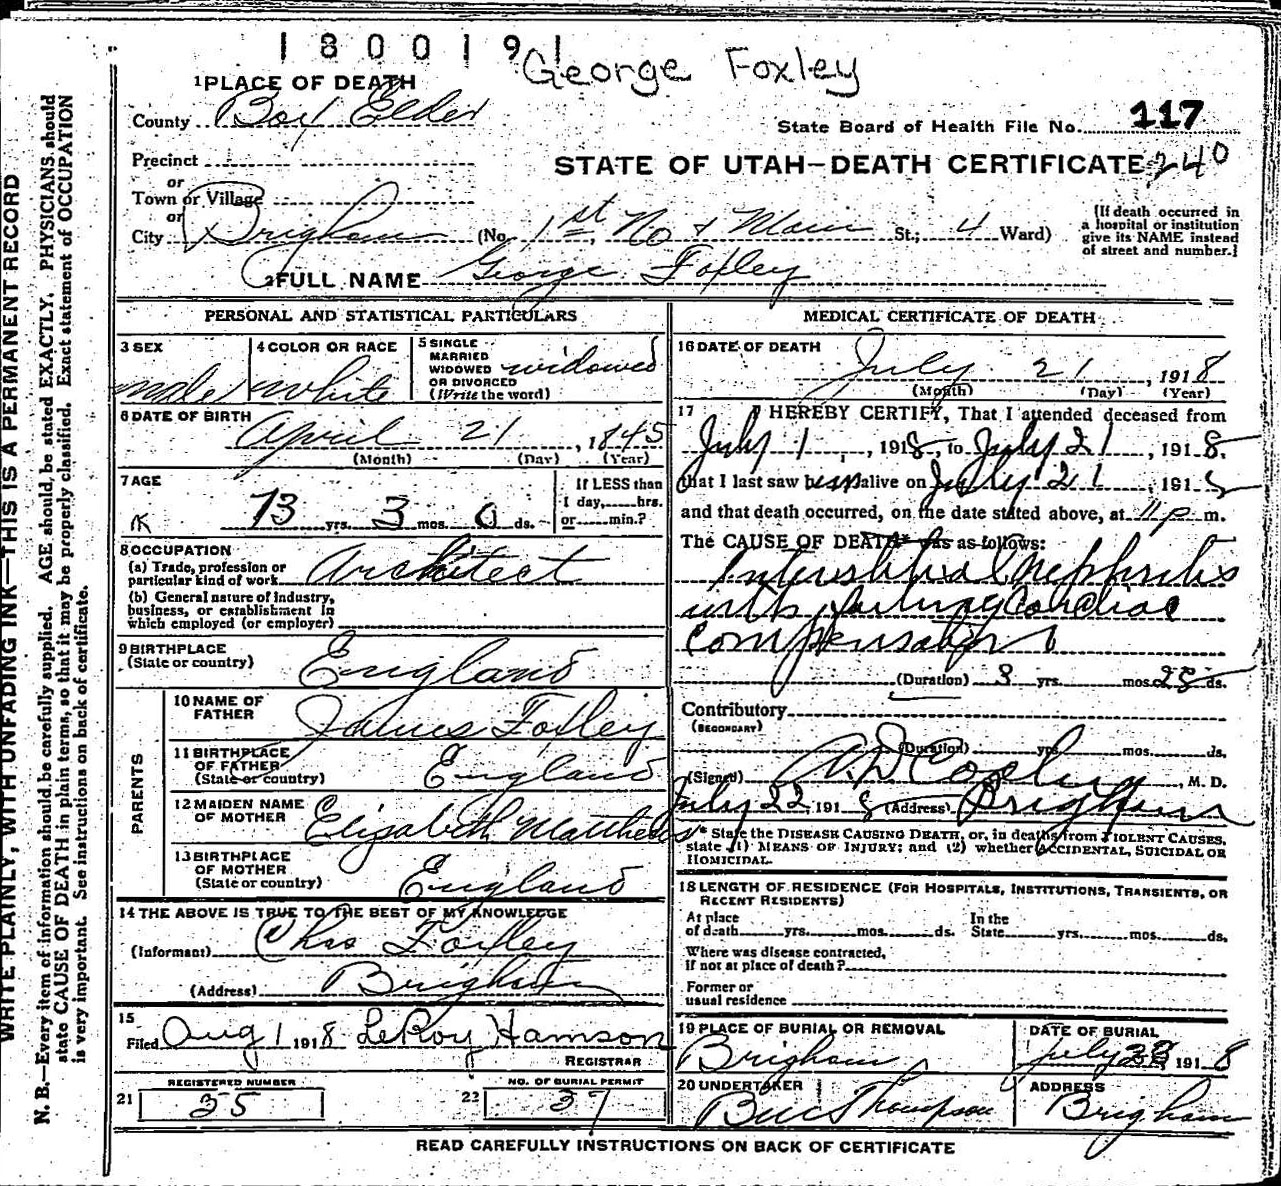 1800191
George Foxley
1 PLACE OF DEATH
County Box Elder
State Board of Health File No. 117
Precinct
STATE OF UTAH—DEATH CERTIFICATE 240
or
Town or Village
or
City Brigham (No. 1st No + Main St.; 4 Ward)
[If death occurred in a hospital or institution give its NAME instead of street and number.]
2 FULL NAME George Foxley
PERSONAL AND STATISTICAL PARTICULARS
3 SEX male
4 COLOR OR RACE white
5 SINGLE MARRIED WIDOWED OR DIVORCED (Write the word) widowed
6 DATE OF BIRTH
April 21, 1845
(Month) (Day) (Year)
7 AGE
73 yrs. 3 mos. 0 ds.
If LESS than 1 day, hrs. or min.?
8 OCCUPATION
(a) Trade, profession or particular kind of work Architect
(b) General nature of industry, business, or establishment in which employed (or employer)
9 BIRTHPLACE
(State or country) England
PARENTS
10 NAME OF FATHER James Foxley
11 BIRTHPLACE OF FATHER (State or country) England
12 MAIDEN NAME OF MOTHER Elizabeth Matthews
13 BIRTHPLACE OF MOTHER (State or country) England
14 THE ABOVE IS TRUE TO THE BEST OF MY KNOWLEDGE
(Informant) Chas Foxley
(Address) Brigham
15
Filed Aug 1 1918 LeRoy Hamson
REGISTRAR
21 REGISTERED NUMBER 35
22 NO. OF BURIAL PERMIT 37
MEDICAL CERTIFICATE OF DEATH
16 DATE OF DEATH
July 21, 1918
(Month) (Day) (Year)
17 I HEREBY CERTIFY, That I attended deceased from
July 1, 1918, to July 21, 1918.
that I last saw him alive on July 21, 1918
and that death occurred, on the date stated above, at 11 p m.
The CAUSE OF DEATH* was as follows:
Interstitial Nephritis
with failing Cardiac
compensation
(Duration) 3 yrs. mos. 28 ds.
Contributory
(SECONDARY)
(Duration) yrs. mos. ds.
(Signed) A.D. Cooley, M. D.
July 22, 1918 (Address) Brigham
* State the DISEASE CAUSING DEATH, or, in deaths from VIOLENT CAUSES,
state (1) MEANS OF INJURY; and (2) whether ACCIDENTAL, SUICIDAL OR
HOMICIDAL.
18 LENGTH OF RESIDENCE (FOR HOSPITALS, INSTITUTIONS, TRANSIENTS, OR
RECENT RESIDENTS)
At place of death yrs. mos. ds. In the State yrs. mos. ds.
Where was disease contracted,
if not at place of death?
Former or
usual residence
19 PLACE OF BURIAL OR REMOVAL
Brigham
DATE OF BURIAL
July 1918
20 UNDERTAKER
Thompson
ADDRESS
Brigham
READ CAREFULLY INSTRUCTIONS ON BACK OF CERTIFICATE
WRITE PLAINLY, WITH UNFADING INK—THIS IS A PERMANENT RECORD
N. B.—Every item of information should be carefully supplied. AGE should be stated EXACTLY. PHYSICIANS should
state CAUSE OF DEATH in plain terms, so that it may be properly classified. Exact statement of OCCUPATION
is very important. See instructions on back of certificate.